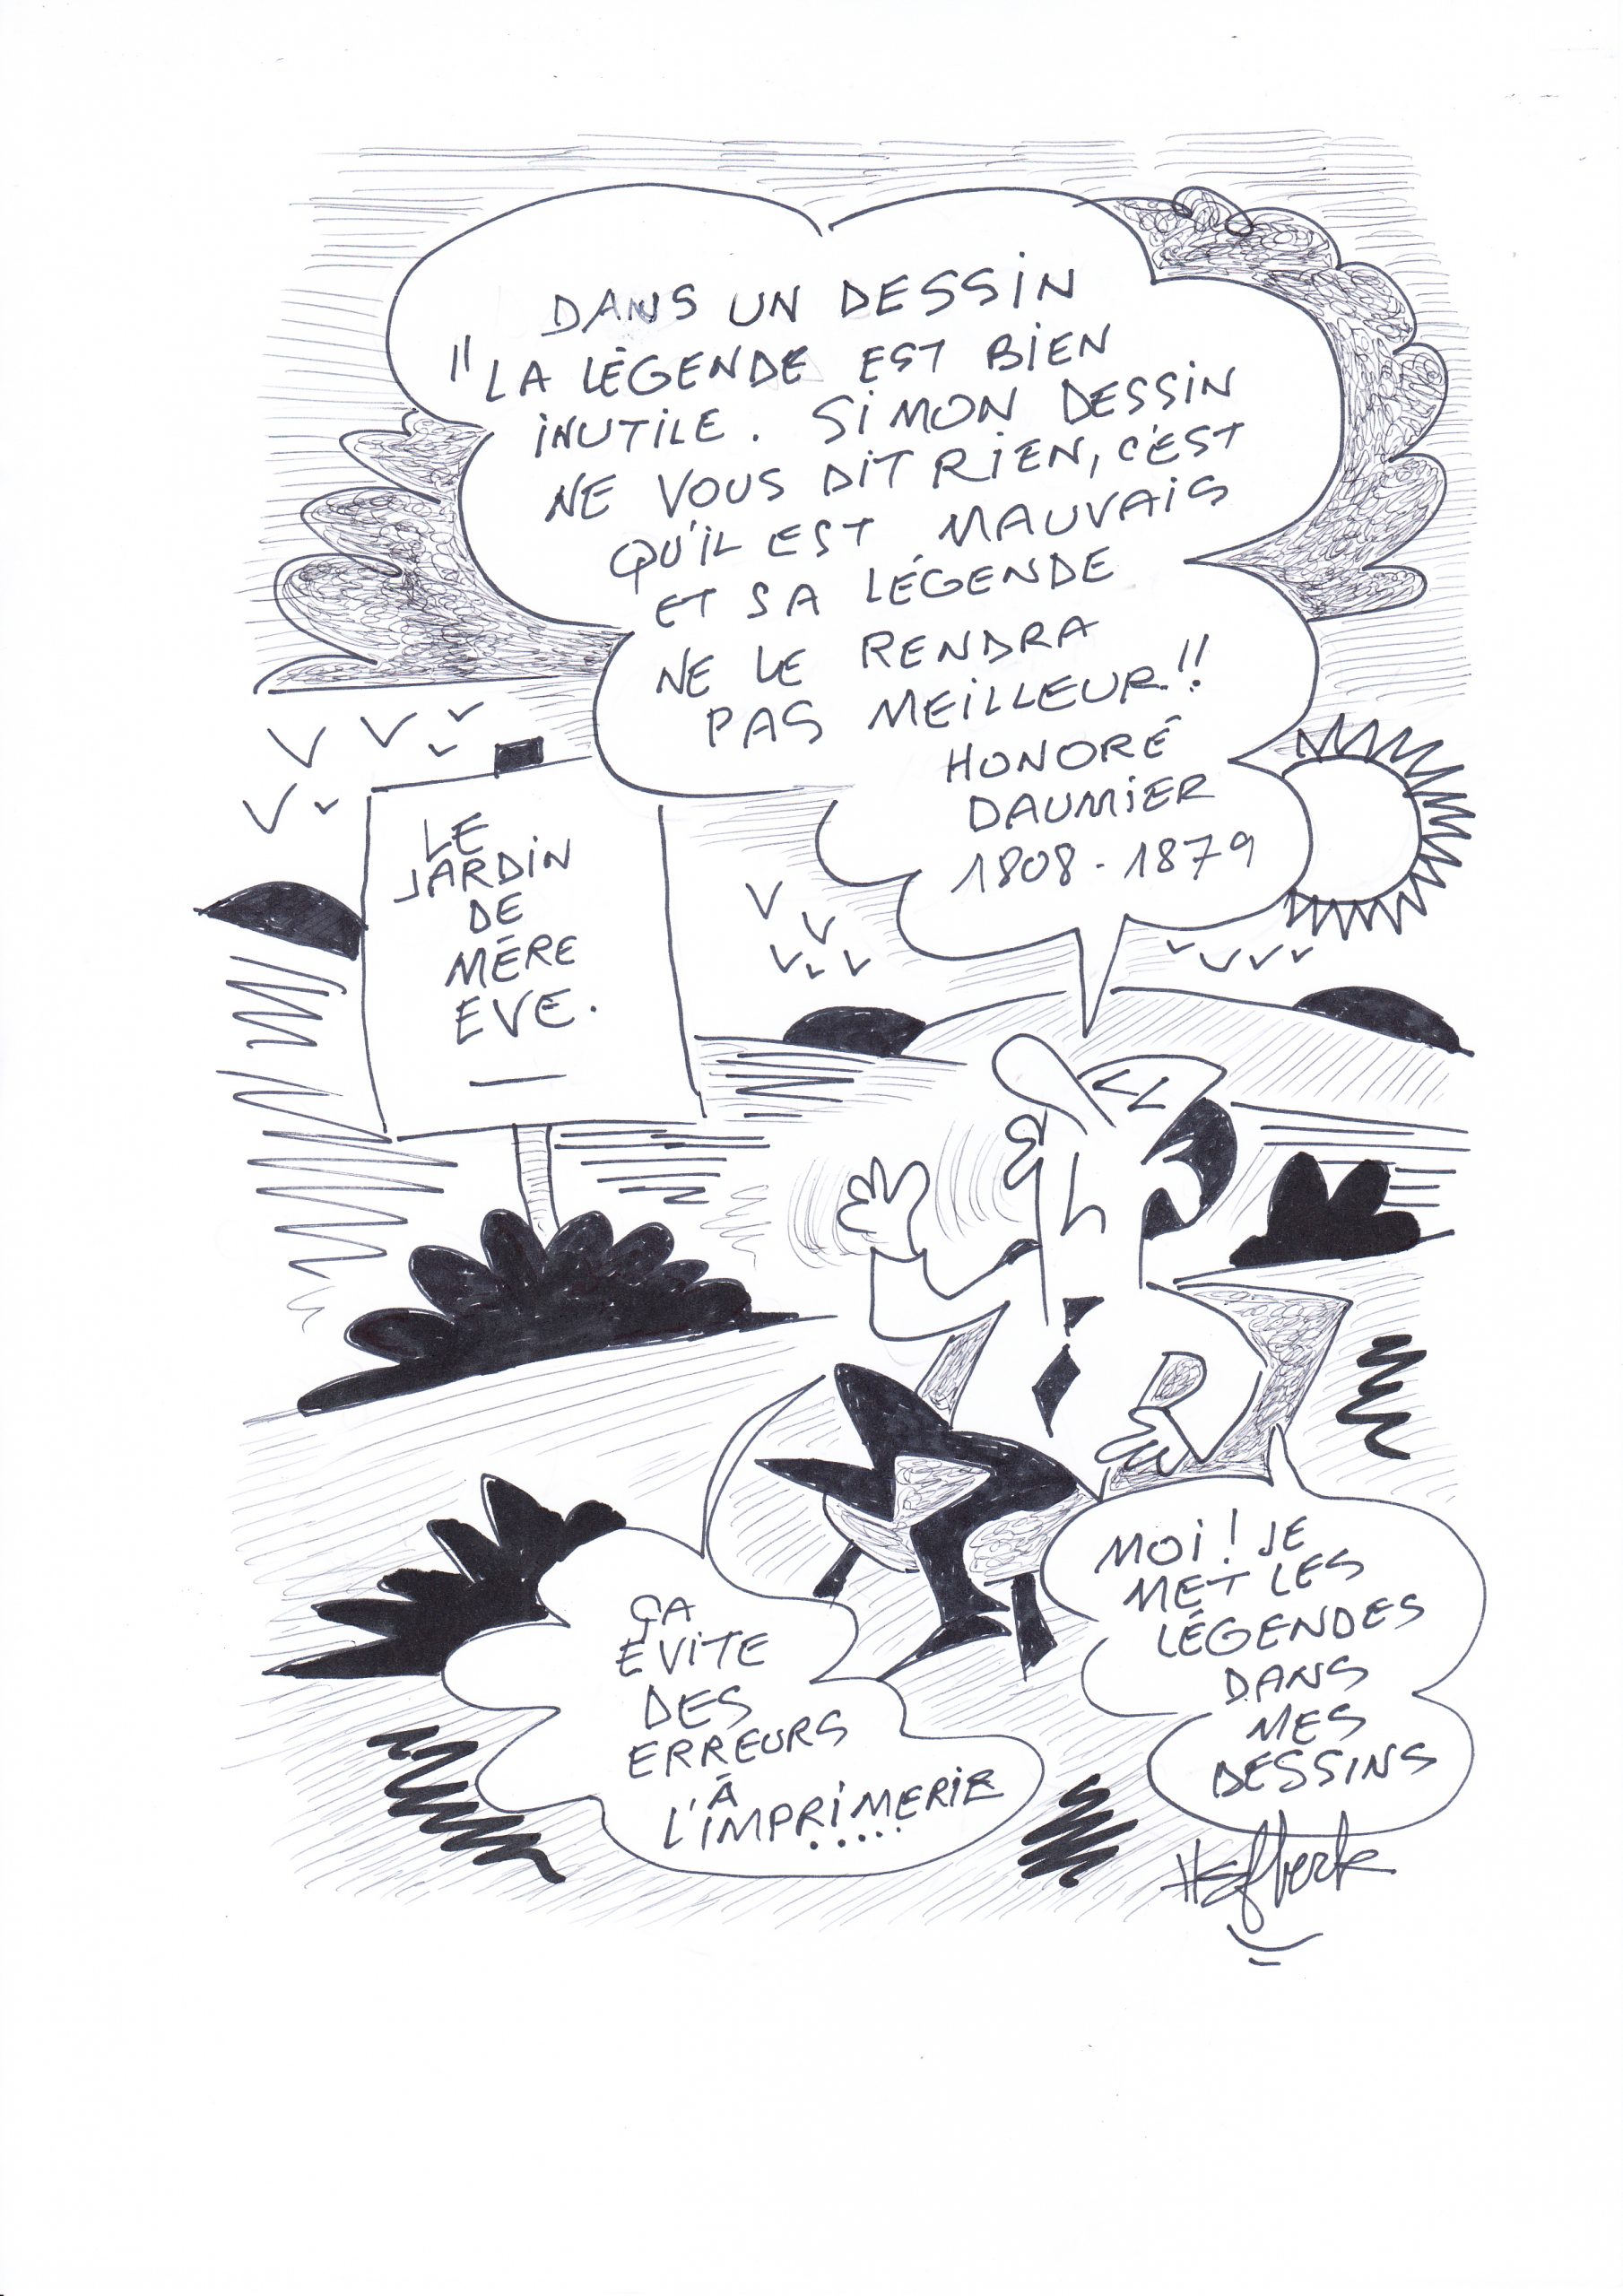 DANS UN DESSIN
"LA LÉGENDE EST BIEN
INUTILE. SI MON DESSIN
NE VOUS DIT RIEN, C'EST
QU'IL EST MAUVAIS
ET SA LÉGENDE
NE LE RENDRA
PAS MEILLEUR!!
HONORÉ
DAUMIER
1808-1879
LE
JARDIN
DE
MÈRE
EVE.
MOI! JE
MET LES
LÉGENDES
DANS
MES
DESSINS
ÇA
EVITE
DES
ERREURS
À
L'IMPRIMERIE
.....